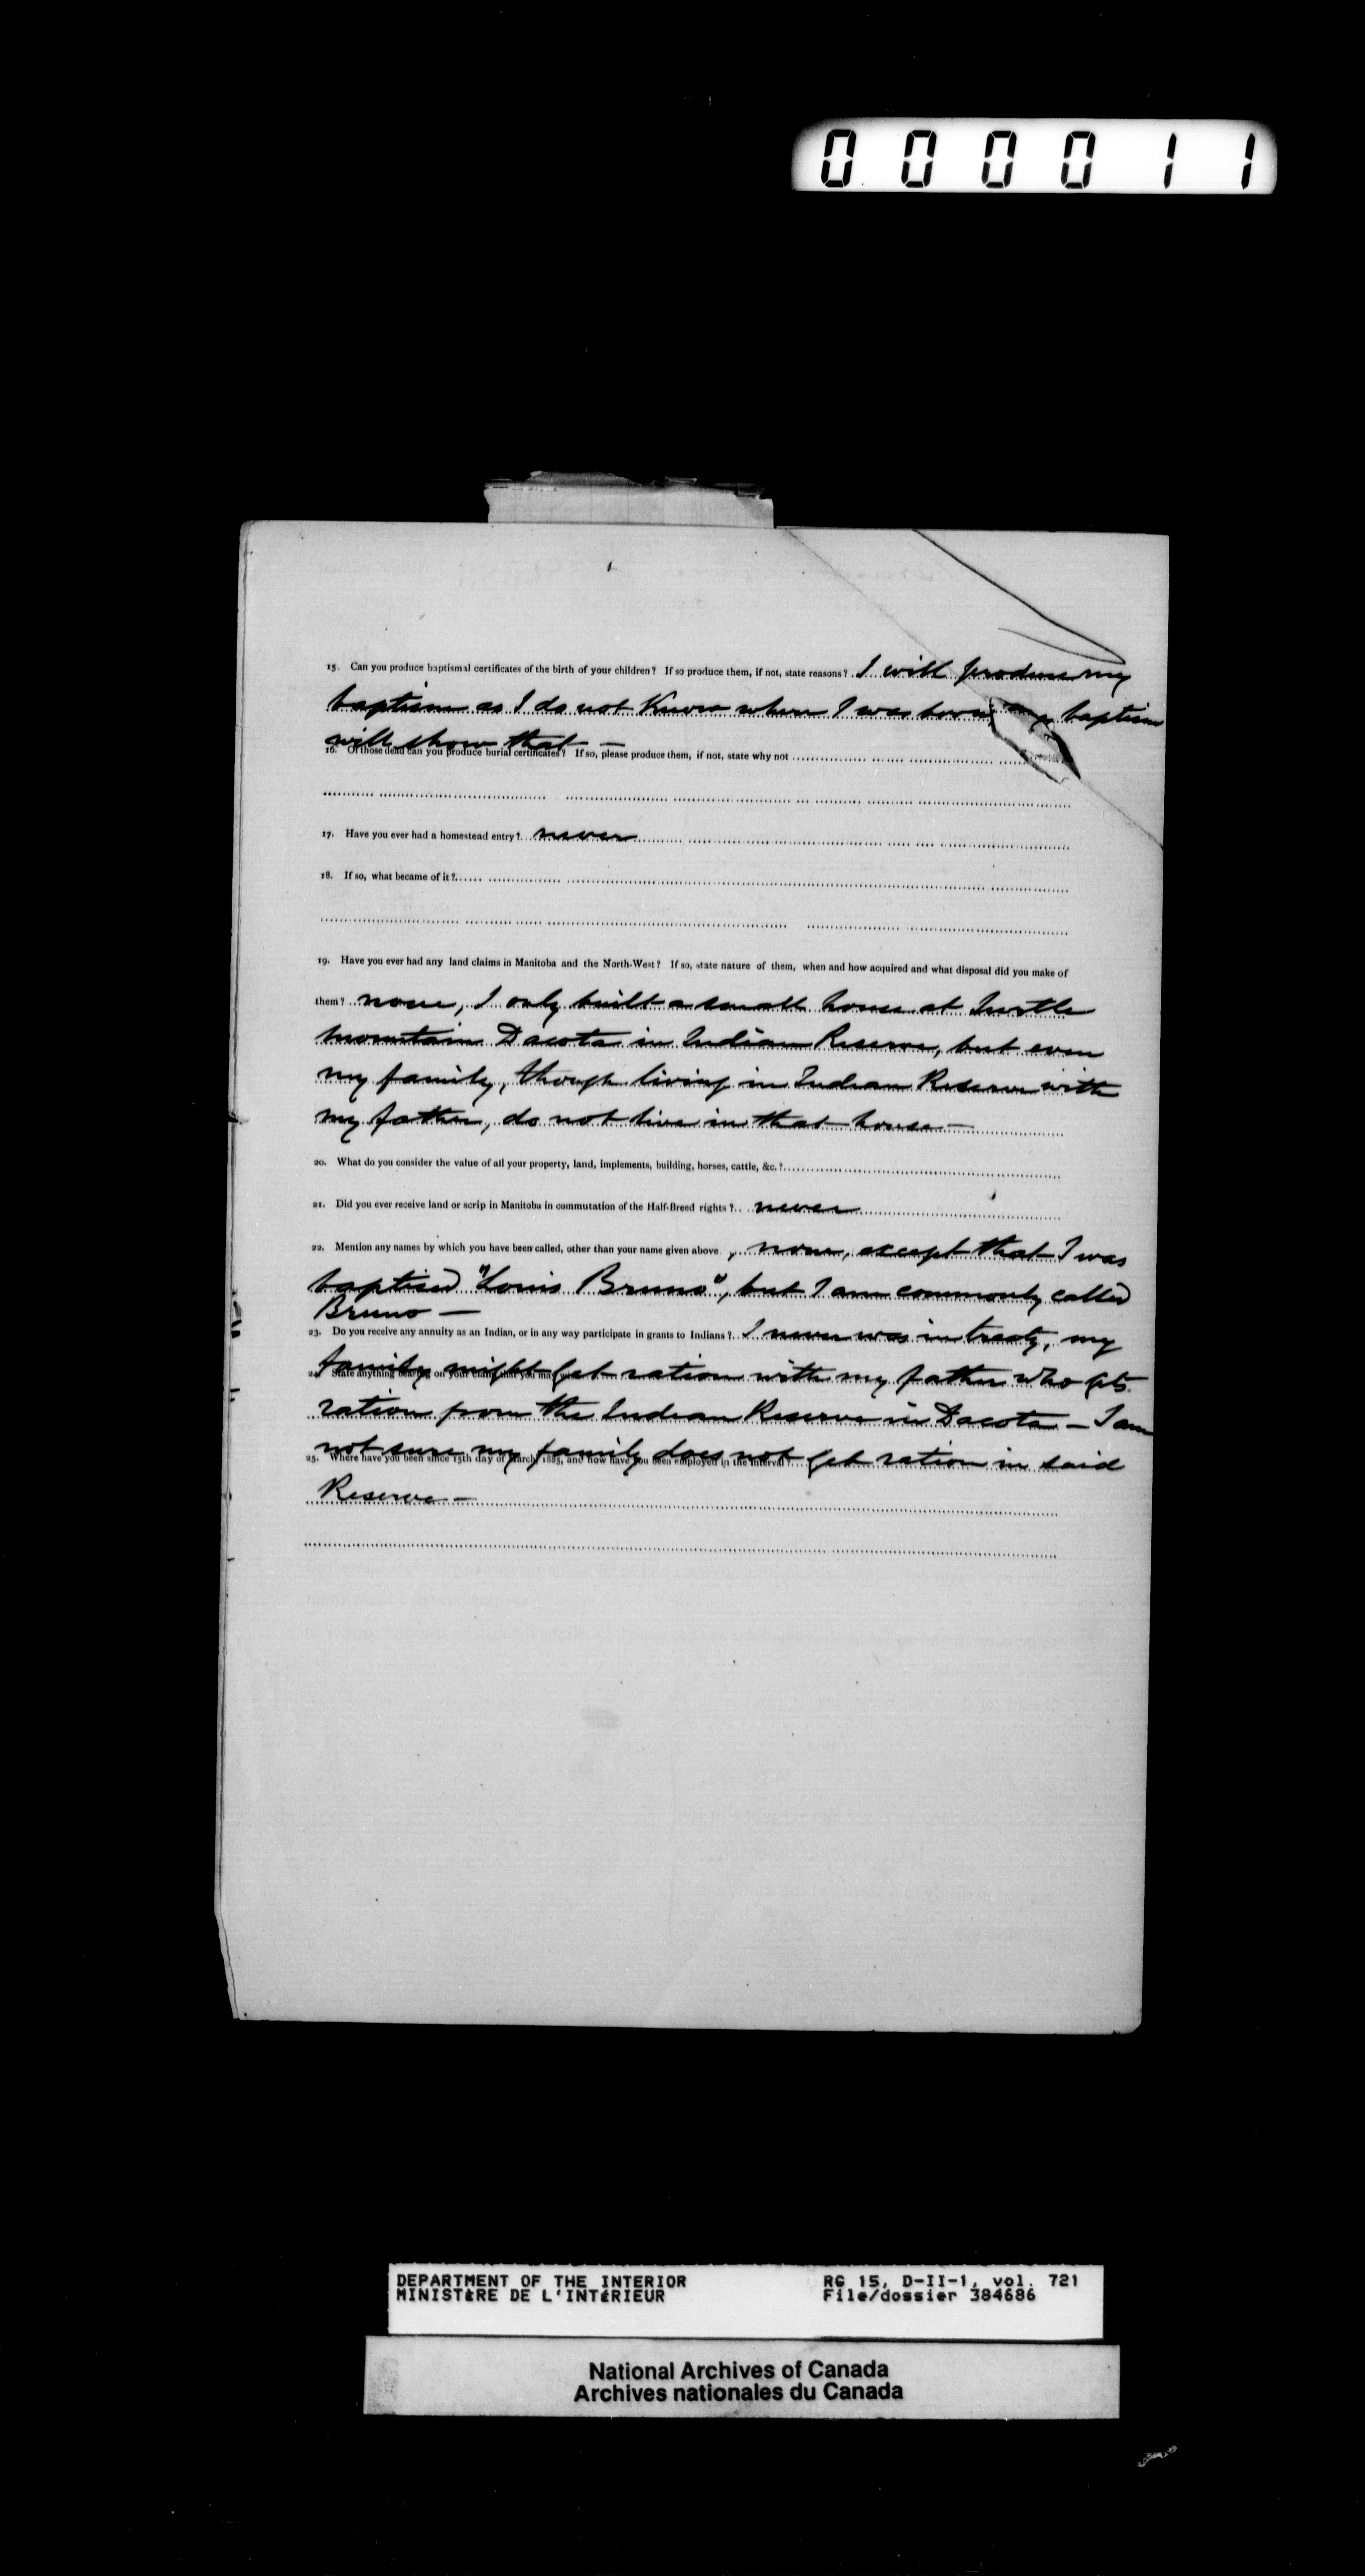 000011
15. Can you produce baptismal certificates of the birth of your children? If so produce them, if not, state reasons? I will produce my
baptism as I do not know where I was born, my baptism
will show that —
16. Of those dead can you produce burial certificates? If so, please produce them, if not, state why not
17. Have you ever had a homestead entry? never
18. If so, what became of it?
19. Have you ever had any land claims in Manitoba and the North-West? If so, state nature of them, when and how acquired and what disposal did you make of
them? none, I only built a small house at Turtle
mountain Dacota in Indian Reserve, but even
my family, though living in Indian Reserve with
my father, do not live in that house —
20. What do you consider the value of all your property, land, implements, building, horses, cattle, &c.?
21. Did you ever receive land or scrip in Manitoba in commutation of the Half-Breed rights? never
22. Mention any names by which you have been called, other than your name given above, none, except that I was
baptised "Louis Bruno", but I am commonly called
Bruno —
23. Do you receive any annuity as an Indian, or in any way participate in grants to Indians? I never was in treaty, my
family might get ration with my father who gets
24. State anything bearing on your claim that you may
ration from the Indian Reserve in Dacota — I am
not sure my family does not get ration in said
25. Where have you been since 15th day of March, 1885, and how have you been employed in the interval?
Reserve —
DEPARTMENT OF THE INTERIOR RG 15, D-II-1, vol. 721
MINISTÈRE DE L'INTÉRIEUR File/dossier 384686
National Archives of Canada
Archives nationales du Canada